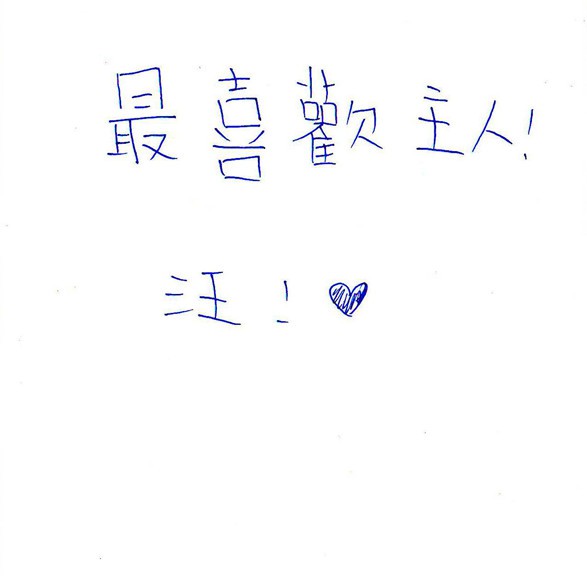 最喜歡主人!
汪!♥